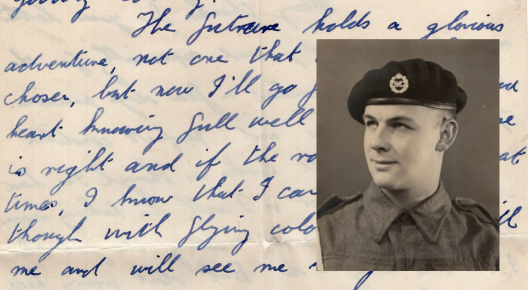 The future holds a glorious
adventure, not one that
chosen, but now I'll go
heart knowing full well
is right and if the
times, I know that I can
though with flying
me and will see me